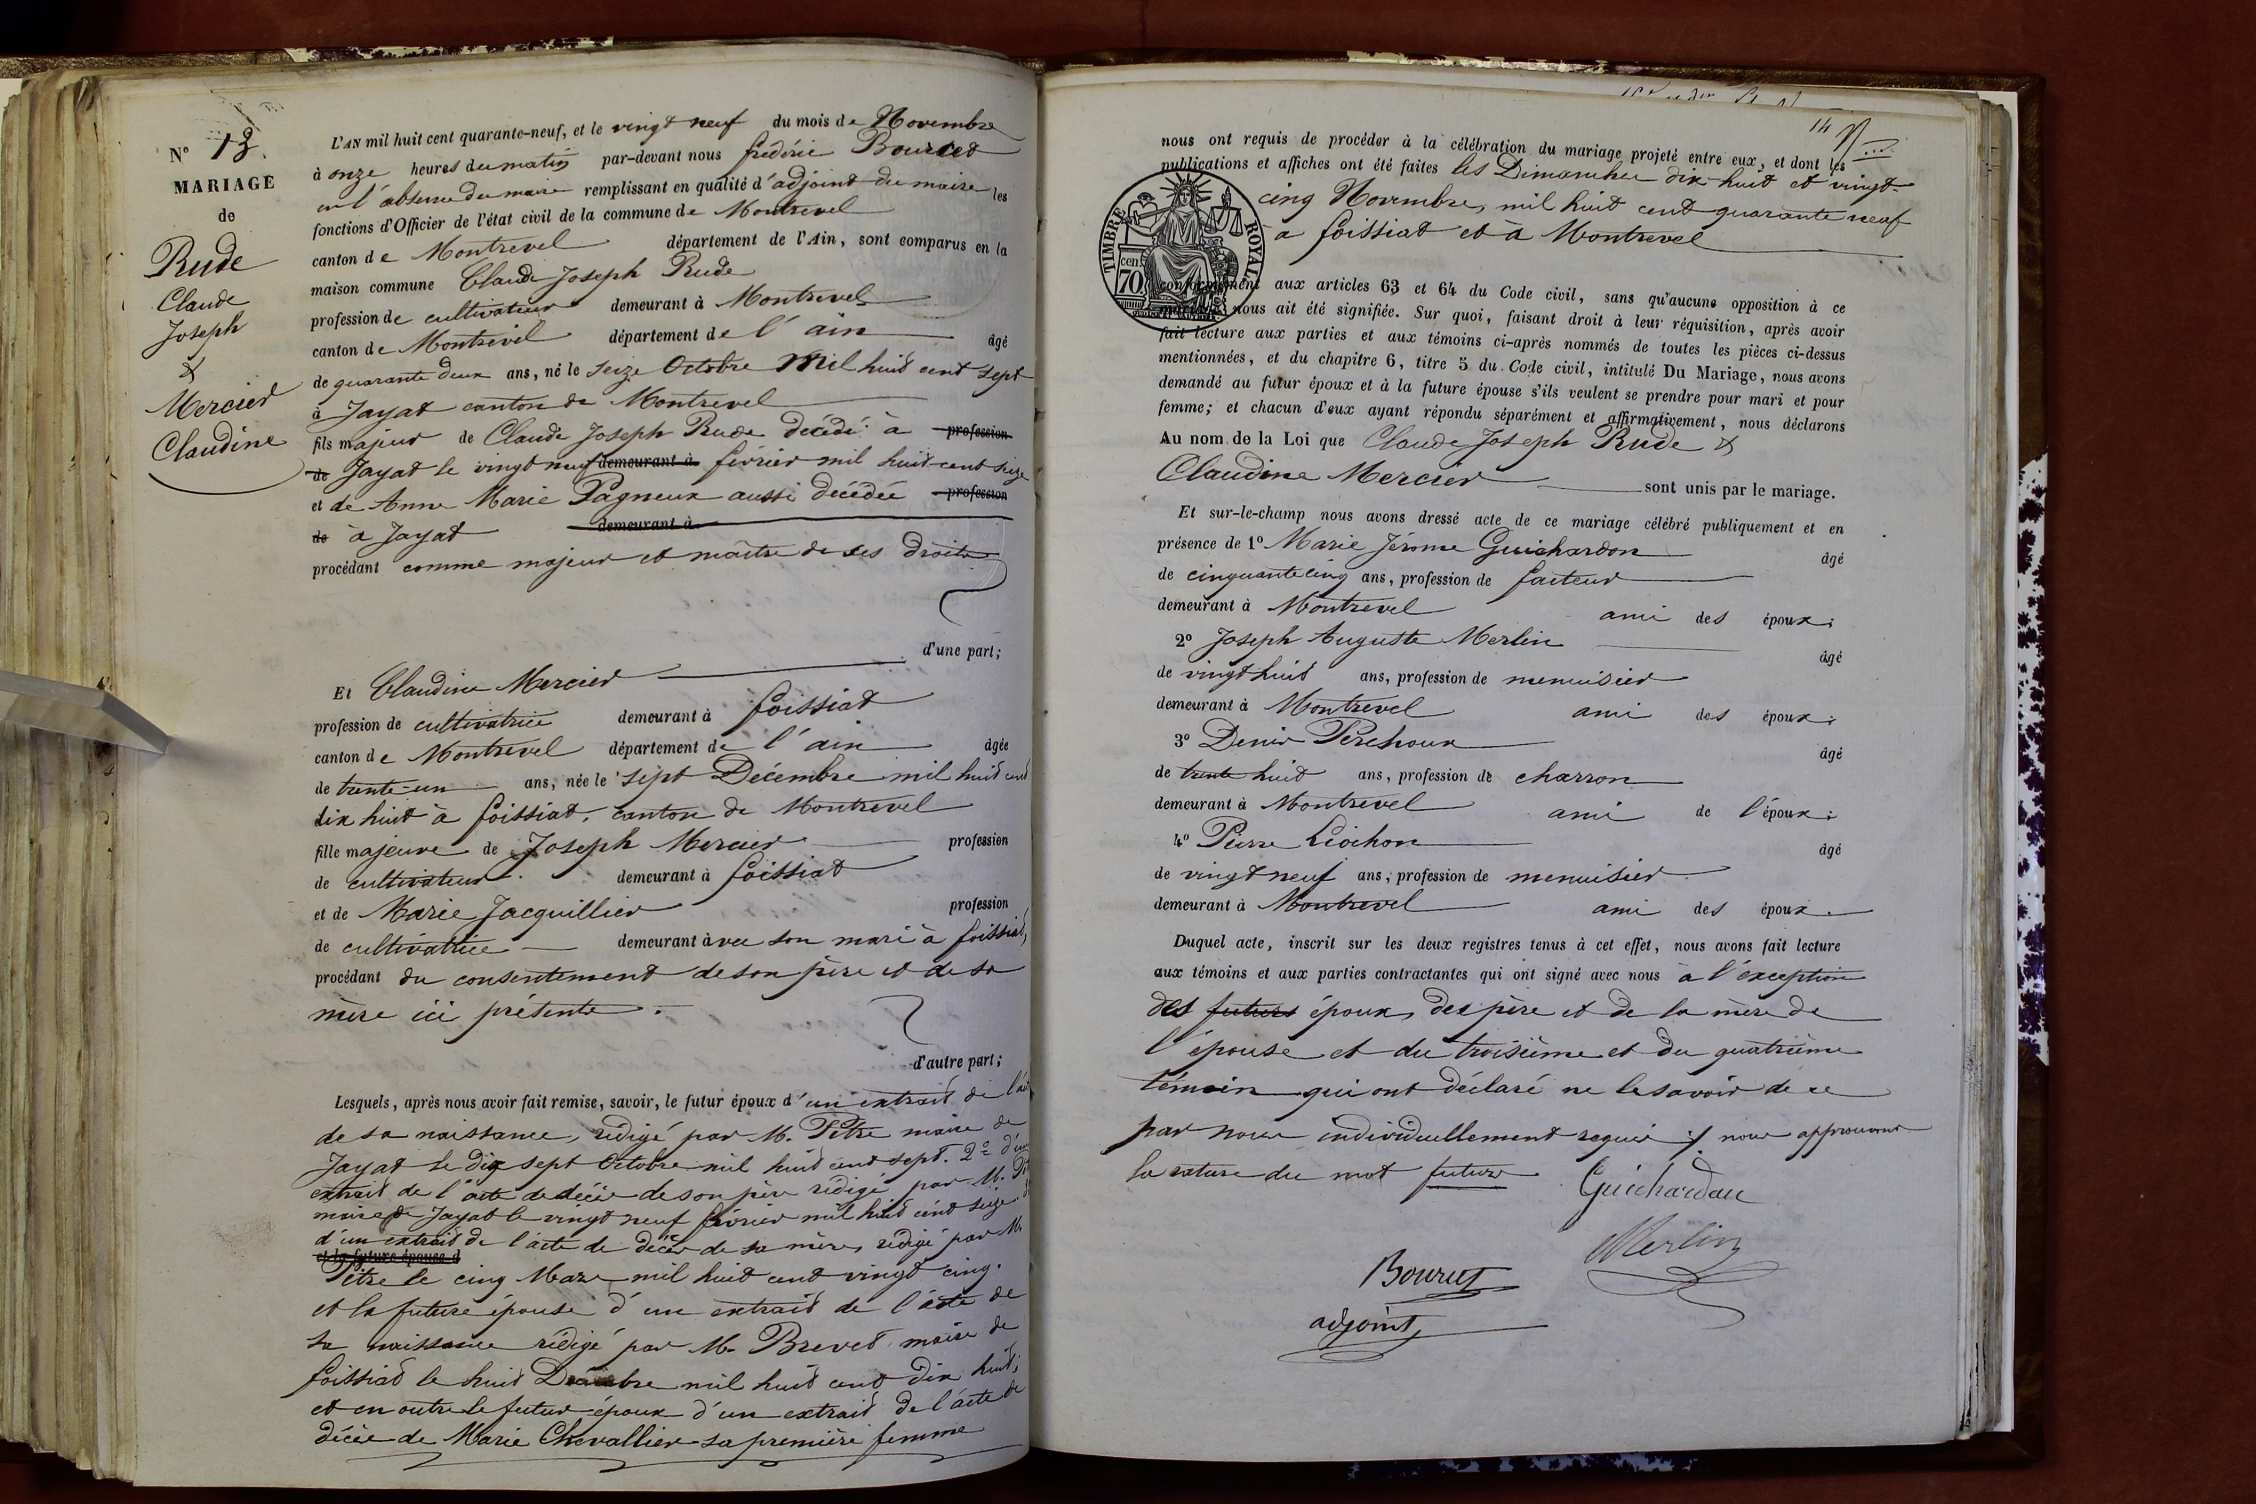 N° 13.
MARIAGE
de
Rude
Claude
Joseph
&
Mercier
Claudine
L'AN mil huit cent quarante-neuf, et le vingt neuf du mois de Novembre
à onze heures du matin par-devant nous frédéric Bourcet
en l'absence du maire remplissant en qualité d'adjoint du maire les
fonctions d'Officier de l'état civil de la commune de Montrevel
canton de Montrevel département de l'Ain, sont comparus en la
maison commune Claude Joseph Rude
profession de cultivateur demeurant à Montrevel
canton de Montrevel département de l'ain âgé
de quarante deux ans, né le seize Octobre Mil huit cent sept
à Jayat canton de Montrevel
fils majeur de Claude Joseph Rude décédé à profession
de Jayat le vingt neuf demeurant à février mil huit cent seize
et de Anne Marie Pagneux aussi décédée profession
de à Jayat demeurant à
procédant comme majeur et maître de ses droits
d'une part;
Et Claudine Mercier
profession de cultivatrice demeurant à foissiat
canton de Montrevel département de l'ain âgée
de trente-un ans, née le sept Décembre mil huit cent
dix huit à foissiat, canton de Montrevel
fille majeure de Joseph Mercier profession
de cultivateur demeurant à foissiat
et de Marie Jacquillier profession
de cultivatrice demeurant à vec son mari à foissiat,
procédant du consentement de son père et de sa
mère ici présents.
d'autre part;
Lesquels, après nous avoir fait remise, savoir, le futur époux d'un extrait de l'acte
de sa naissance, rédigé par M. Pitre maire de
Jayat le dix sept Octobre mil huit cent sept. 2° d'un
extrait de l'acte de décès de son père rédigé par M.
maire de Jayat le vingt neuf février mil huit cent seize
d'un extrait de l'acte de décès de sa mère, rédigé par M.
et la future épouse d
Pitre le cinq Mars mil huit cent vingt cinq.
et la future épouse d'un extrait de l'acte de
sa naissance rédigé par M. Brevet maire de
foissiat le huit Décembre mil huit cent dix huit;
et en outre le futur époux d'un extrait de l'acte de
décès de Marie Chevallier sa première femme
14
nous ont requis de procéder à la célébration du mariage projeté entre eux, et dont les
publications et affiches ont été faites les Dimanches dix-huit et vingt-
cinq Novembre, mil huit cent quarante neuf
à foissiat et à Montrevel
TIMBRE ROYAL
cen. 70
conformément aux articles 63 et 64 du Code civil, sans qu'aucune opposition à ce
mariage nous ait été signifiée. Sur quoi, faisant droit à leur réquisition, après avoir
fait lecture aux parties et aux témoins ci-après nommés de toutes les pièces ci-dessus
mentionnées, et du chapitre 6, titre 5 du Code civil, intitulé Du Mariage, nous avons
demandé au futur époux et à la future épouse s'ils veulent se prendre pour mari et pour
femme; et chacun d'eux ayant répondu séparément et affirmativement, nous déclarons
Au nom de la Loi que Claude Joseph Rude &
Claudine Mercier sont unis par le mariage.
Et sur-le-champ nous avons dressé acte de ce mariage célébré publiquement et en
présence de 1° Marie Jérome Guichardon âgé
de cinquante cinq ans, profession de facteur
demeurant à Montrevel ami des époux;
2° Joseph Auguste Merlin âgé
de vingt huit ans, profession de menuisier
demeurant à Montrevel ami des époux;
3° Denis Perchoux âgé
de trente huit ans, profession de charron
demeurant à Montrevel ami de l'époux;
4° Pierre Liochon âgé
de vingt neuf ans, profession de menuisier
demeurant à Montrevel ami des époux.
Duquel acte, inscrit sur les deux registres tenus à cet effet, nous avons fait lecture
aux témoins et aux parties contractantes qui ont signé avec nous à l'exception
des futurs époux, des père et de la mère de
l'épouse et du troisième et du quatrième
témoin qui ont déclaré ne le savoir de ce
par nous individuellement requis ;/ nous approuvons
la rature du mot futurs
Guichardon
Merlin
Bourcet
adjoint